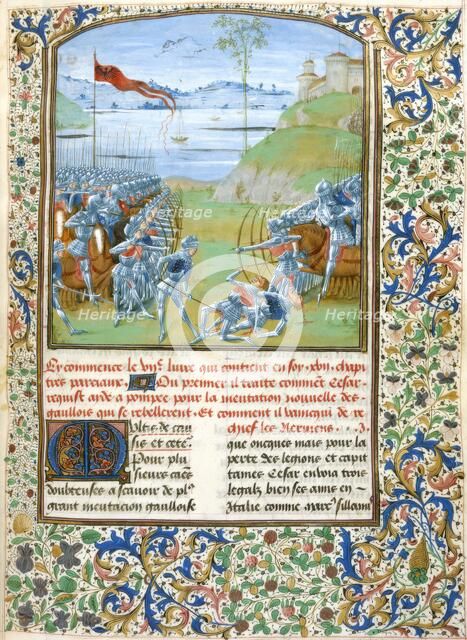 Heritage Heritage
Heritage Heritage
Heritage Heritage
Cy commence le vije livre qui contient en soy .xvij. chapi
tres parciaux. Ou premier il traitte comment Cesar
requist aide a pompee pour la mentation nouvelle des
gaullois qui se rebellerent. Et comment il vainqui de re
chief les Nerviens
Multis de cau
sis et cete.
Pour plu
sieurs causes
doubteuses a scavoir de plus
grant meutacion gaulloise
que oncques mais pour la
perte des legions et capi
taines Cesar envoia trois
legalz bien ses amis en
Italie comme marc sillanu